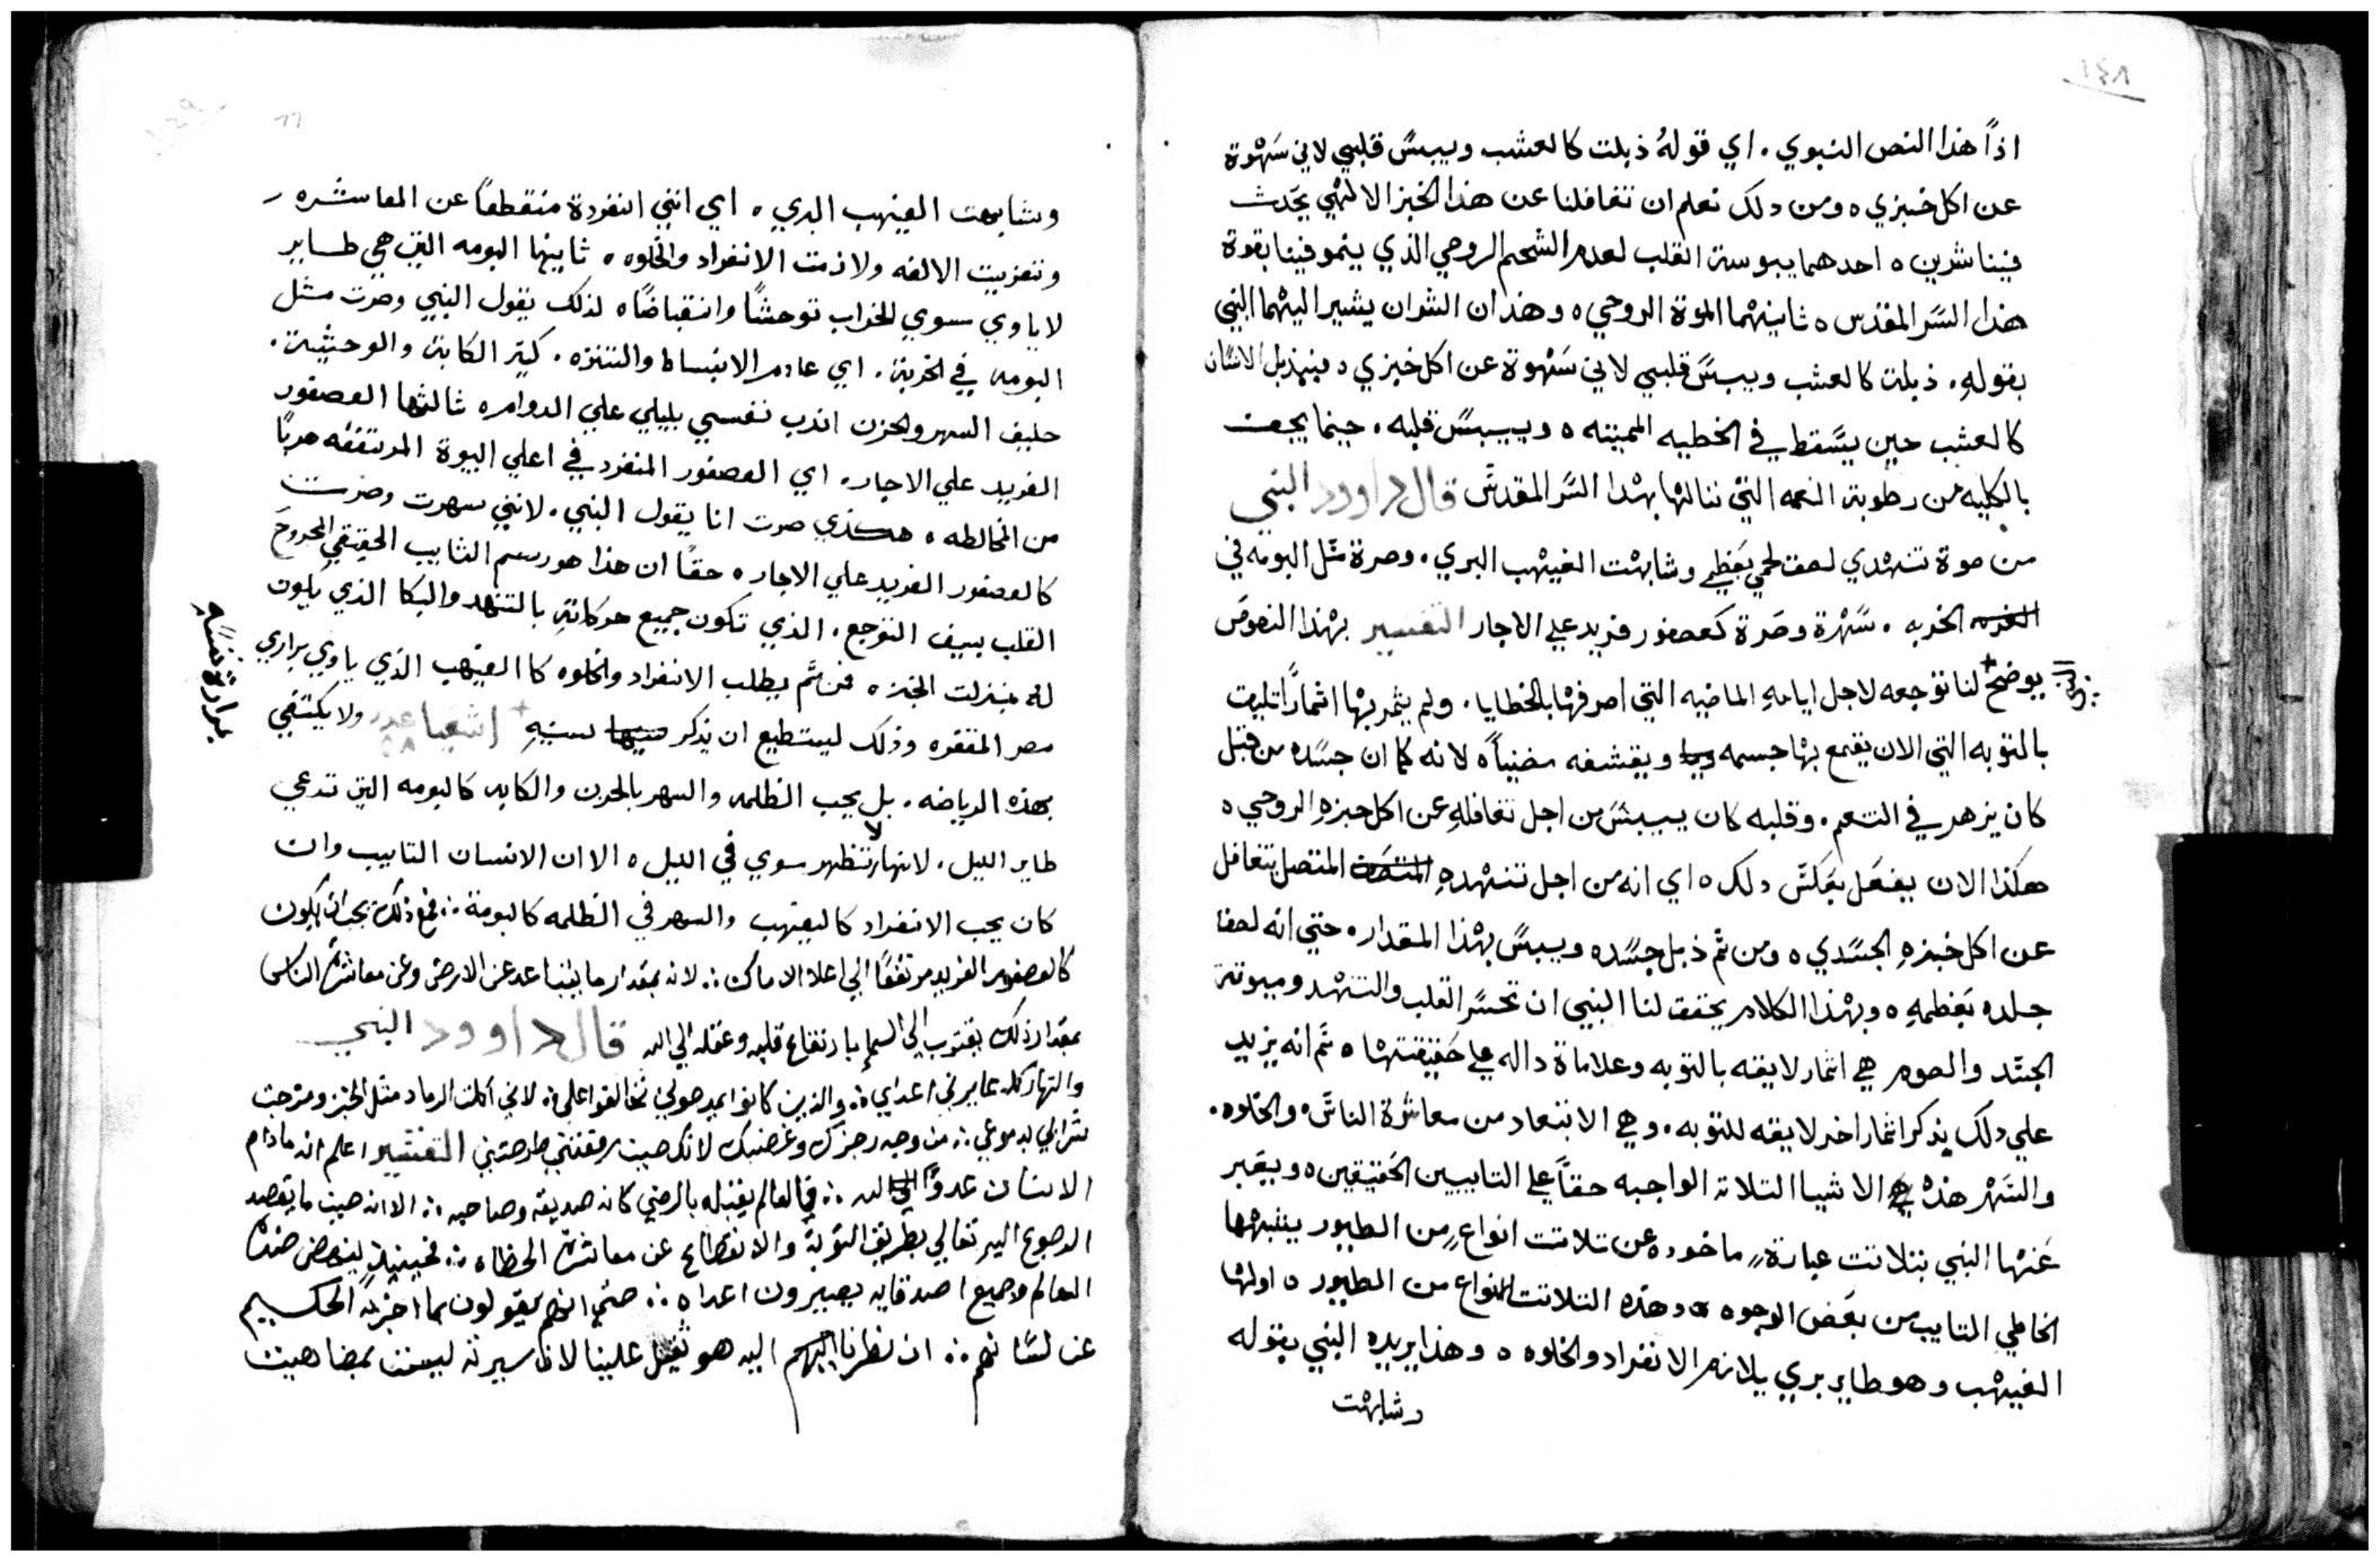 ١٤٨
اذاً هذا النص النبوي. اي قولهُ ذبلت كالعشب ويبسَ قلبي لاني سَهْوة
عن اكل خبزي ٥ ومن دلك نعلم ان تغافلنا عن هذا الخبز الالهي يحَدث
فينا شرين ٥ احدهما يبوسة القلب لعدم الشحم الروحي الذي ينمو فينا بقوة
هذا السَر المقدس ٥ ثانيهما الموة الروحي ٥ وهذان الشران يشير اليهما النبي
بقولهِ. ذبلت كالعشب ويبسَ قلبي لاني سَهْوة عن اكل خبزي ٥ فيذبل الانسَان
كالعشب حين يسَقط في الخطيه المميته ٥ وييبسَ قلبه. حينما يجف
بالكليه من رطوبة النعمه التي ننالها بهْذا السَر المقدسَ قال داوود النبي
من صوة تنهْدي لصق لحمي بعَظمي وشابهْت الغيهْب البري. وصرة متَل البومه في
الخربه. سَهْرة وصَرة كعصفور فريد علي الاجار التفسير بهْذا النصوصَ
يوضح + لنا توجعه لاجل ايامهِ الماضيه التي اصرفهْا بالخطايا. ولم يثمر بهْا اثماراً تليق
النبي
بالتوبه التي الان يقمع بهْا جسمه ويقشفه مضنياً ٥ لانه كما ان جسَده من قبل
كان يزهر في التنعم. وقلبه كان ييبسَ من اجل تغافلهِ عن اكل خبزهِ الروحي ٥
هكذا الان يفعَل بعَكسَ دلك ٥ اي انه من اجل تنهْدهِ المتصل يتغافل
عن اكل خبزهِ الجسَدي ٥ ومن ثم ذبل جسَده ويبسَ بهْذا المقدار. حتي انه لصق
جلده بعَظمهِ ٥ وبهْذا الكلام يحقق لنا النبي ان تحسَر القلب والتنهْد ويبوتة
الجسَد والصوم هي اثمار لايقه بالتوبه وعلاماة داله علي حَقيقتهْا ٥ ثم انه يزيد
علي دلك يذكر اثمار اخر لايقه للتوبه. وهي الابتعاد من معاشرة الناسَ والخلوه.
والسَهْر هذهْ هي الاشيا التلاته الواجبه حقاً علي التايبين الحَقيقين ٥ ويعَبر
عَنهْا النبي بتلاتت عبارةٍ ماخوده عن تلاتت انواعٍ من الطيور يشبهْها
الخاطي التايب من بعَض الوجوه ٥ وهذه التلاتت انواع من الطيور ٥ اولهْا
الغيهْب وهو طاير بري يلازم الانفراد والخلوه ٥ وهذا يريده النبي بقوله
وشابهْت
وشابهت الغيهب البري ٥ اي انني انفردة منقطعاً عن المعاشره
وتغربيت الالفه ولازمت الانفراد والخلوه ٥ ثانيها البومه التي هي طاير
لا ياوي سوي للخراب توحشاً وانقباضاً ٥ لذلك يقول النبي وصرت مثل
البومه في الخربة. اي عادم الانبساط والتنزه. كثير الكابة والوحشة.
حليف السهر والحزن اندب نفسي بليلي علي الدوام ٥ ثالثها العصفور
الفريد علي الاجار. اي العصفور المنفرد في اعلي البيوة المرتفعه هرباً
من المخالطه ٥ هكذي صرت انا يقول النبي. لانني سهرت وصرت
كالعصفور الفريد علي الاجار ٥ حقاً ان هذا هو رسم التايب الحقيقي المجروحَ
القلب بسيف التوجع. الذي تكون جميع حركاتهِ بالتنهد والبكا الذي يكون
له بمنزلت الخبز ٥ فمن ثمَ يطلب الانفراد والخلوه كا الغيهب الذي ياوي براري
مصر المقفره وذلك ليستطيع ان يذكر سنيهِ + اشعيا عدد ٥٨ ولا يكتفي
بمرارة نفسَهِ
بهذه الرياضه. بل يحب الظلمه والسهر بالحزن والكابه كاليومه التي تدعي
طاير الليل. لانها لا تظهر سوي في الليل ٥ الا ان الانسان التايب وان
كان يحب الانفراد كالغيهب والسهر في الظلمه كالبومة ∴ فمع ذلك يجب ان يكون
كالعصفور الفريد مرتفعاً الي اعلا الاماكن ∴ لانه بمقدار ما يتباعد عن الارض وعن معاشرة الناس
بمقدار ذلك يقترب الي السما بارتفاع قلبه وعقله الي الله قال داوود النبي
والنهار كله عايرني اعداي ∴ والذين كانوا يمدحوني تحالفوا علي ∴ لاني اكلت الرماد مثل الخبز ومزجت
شرابي بدموعي ∴ من وجه رجزك وغضبك لانك حين رفعتني طرحتني التفسير اعلم انه مادام
الانسان عدواً لله ∴ فالعالم يقبله بالرضي كانه صديقه وصاحبه ∴ الا انه حين ما يقصد
الرجوع اليهِ تعالي بطريق التوبة والانقطاع عن معاشرة الخطاه ∴ فحينيذٍ ينهض ضده
العالم وجميع اصدقايه يصيرون اعداه ∴ حتي انهم يقولون كما اخبر به الحكيم
عن لسَانهم ∴ ان نظرنا اليه هو ثقيل علينا لان سيرته ليست بمضاهيت